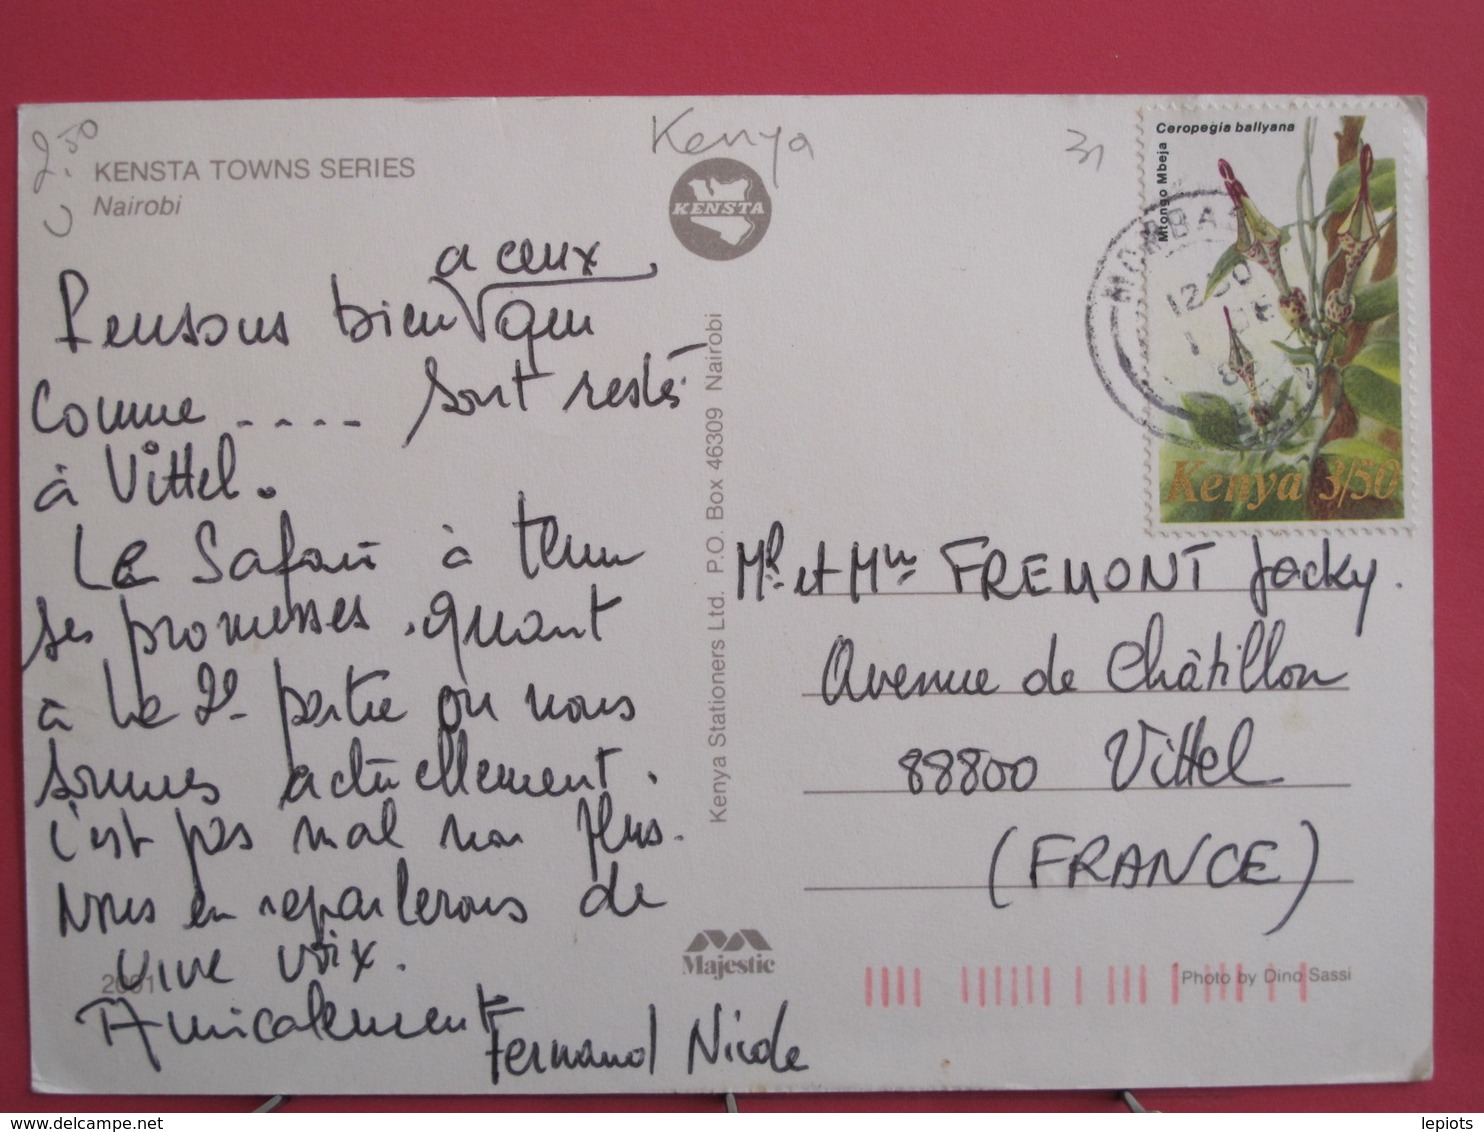 2.50
Kenya
31
KENSTA TOWNS SERIES
Nairobi
KENSTA
Pensons bien a ceux que
comme .... sont restés
à Vittel.
Le Safari à tenu
ses promesses. quant
à la 2e partie où nous
sommes actuellement.
c'est pas mal non plus.
Nous en reparlerons de
vive voix.
Amicalement
Fernand Nicole
2001
Kenya Stationers Ltd. P.O. Box 46309 Nairobi
Majestic
Ceropegia ballyana
Mtongo Mbeja
Kenya 3/50
Mr. et Mme FREMONT Jacky.
Avenue de Châtillon
88800 Vittel
(FRANCE)
Photo by Dino Sassi
delcampe.net
lepiots